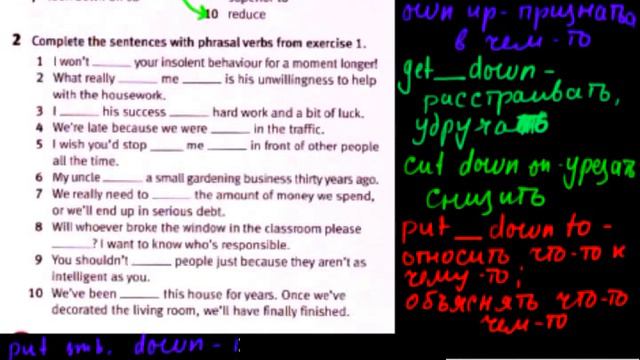 10 reduce
2 Complete the sentences with phrasal verbs from exercise 1.
1 I won't ______ your insolent behaviour for a moment longer!
2 What really ______ me ______ is his unwillingness to help
with the housework.
3 I ______ his success ______ hard work and a bit of luck.
4 We're late because we were ______ in the traffic.
5 I wish you'd stop ______ me ______ in front of other people
all the time.
6 My uncle ______ a small gardening business thirty years ago.
7 We really need to ______ the amount of money we spend,
or we'll end up in serious debt.
8 Will whoever broke the window in the classroom please
______? I want to know who's responsible.
9 You shouldn't ______ people just because they aren't as
intelligent as you.
10 We've been ______ this house for years. Once we've
decorated the living room, we'll have finally finished.
own up - признать
в чем-то
get __ down -
расстраивать,
удруча
cut down on - урезать
снизить
put __ down to -
относить что-то к
чему-то;
объяснять что-то
чем-то
put smb. down -